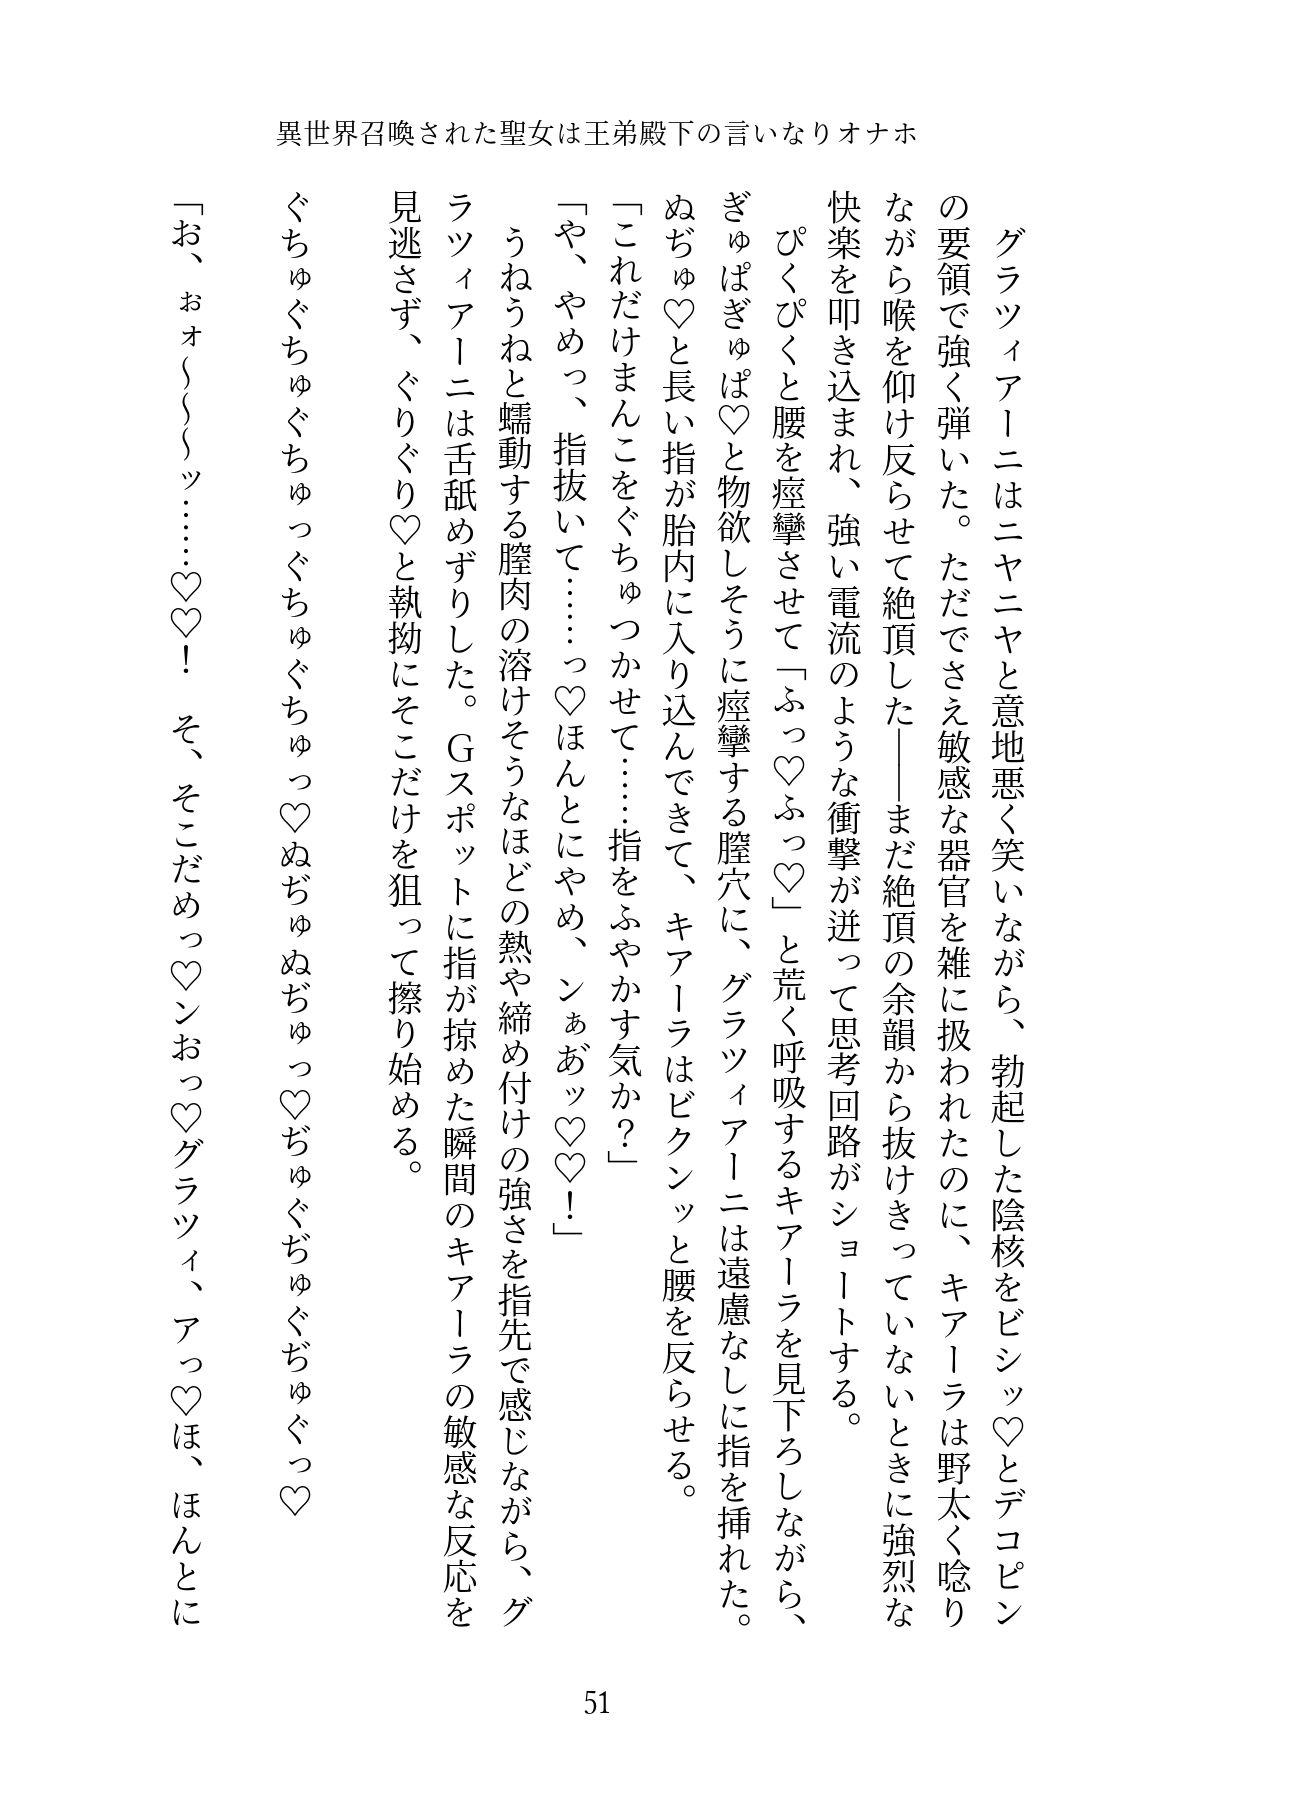 異世界召喚された聖女は王弟殿下の言いなりオナホ
　グラツィアーニはニヤニヤと意地悪く笑いながら、勃起した陰核をビシッ♡とデコピン
の要領で強く弾いた。ただでさえ敏感な器官を雑に扱われたのに、キアーラは野太く唸り
ながら喉を仰け反らせて絶頂した――まだ絶頂の余韻から抜けきっていないときに強烈な
快楽を叩き込まれ、強い電流のような衝撃が迸って思考回路がショートする。
　ぴくぴくと腰を痙攣させて「ふっ♡ふっ♡」と荒く呼吸するキアーラを見下ろしながら、
ぎゅぱぎゅぱ♡と物欲しそうに痙攣する膣穴に、グラツィアーニは遠慮なしに指を挿れた。
ぬぢゅ♡と長い指が胎内に入り込んできて、キアーラはビクンッと腰を反らせる。
「これだけまんこをぐちゅつかせて……指をふやかす気か？」
「や、やめっ、指抜いて……っ♡ほんとにやめ、ンぁあ゙ッ♡♡！」
　うねうねと蠕動する膣肉の溶けそうなほどの熱や締め付けの強さを指先で感じながら、グ
ラツィアーニは舌舐めずりした。Gスポットに指が掠めた瞬間のキアーラの敏感な反応を
見逃さず、ぐりぐり♡と執拗にそこだけを狙って擦り始める。
ぐちゅぐちゅぐちゅっぐちゅぐちゅっ♡ぬぢゅぬぢゅっ♡ぢゅぐぢゅぐぢゅぐっ♡
「お、ぉォ～～～ッ……♡♡！　そ、そこだめっ♡ンおっ♡グラツィ、アっ♡ほ、ほんとに
51